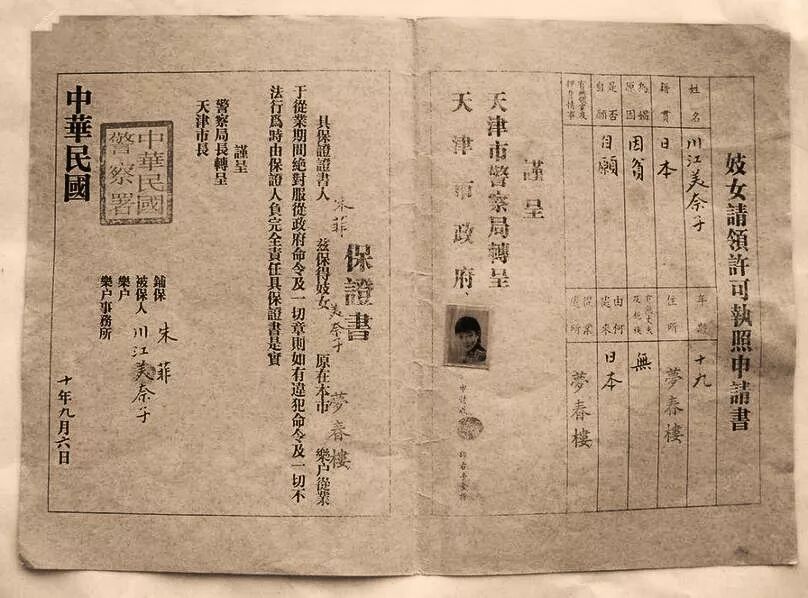 妓女請領許可執照申請書
姓名 川江美奈子 年齡 十九
籍貫 日本 住所 夢春樓
為娼原因 因貧 有無丈夫及親族 無
是否自願 自願 由何處來 日本
有無領家及押身情事 從業處所 夢春樓
謹呈
天津市警察局轉呈
天津市政府
保證書
具保證證書人 朱菲 茲保得妓女 美奈子 原在本市 夢春樓 樂户從業
于從業期間絶對服從政府命令及一切章則如有違犯命令及一切不
法行爲時由保證人負完全責任具保證書是實
謹呈
警察局長轉呈
天津市長
中華民國警察署
鋪保 朱菲
被保人 川江美奈子
樂户
樂户事務所
中華民國 十年九月六日